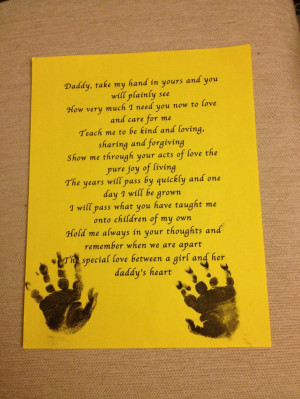 Daddy, take my hand in yours and you
will plainly see
How very much I need you now to love
and care for me
Teach me to be kind and loving,
sharing and forgiving
Show me through your acts of love the
pure joy of living
The years will pass by quickly and one
day I will be grown
I will pass what you have taught me
onto children of my own
Hold me always in your thoughts and
remember when we are apart
The special love between a girl and her
daddy's heart